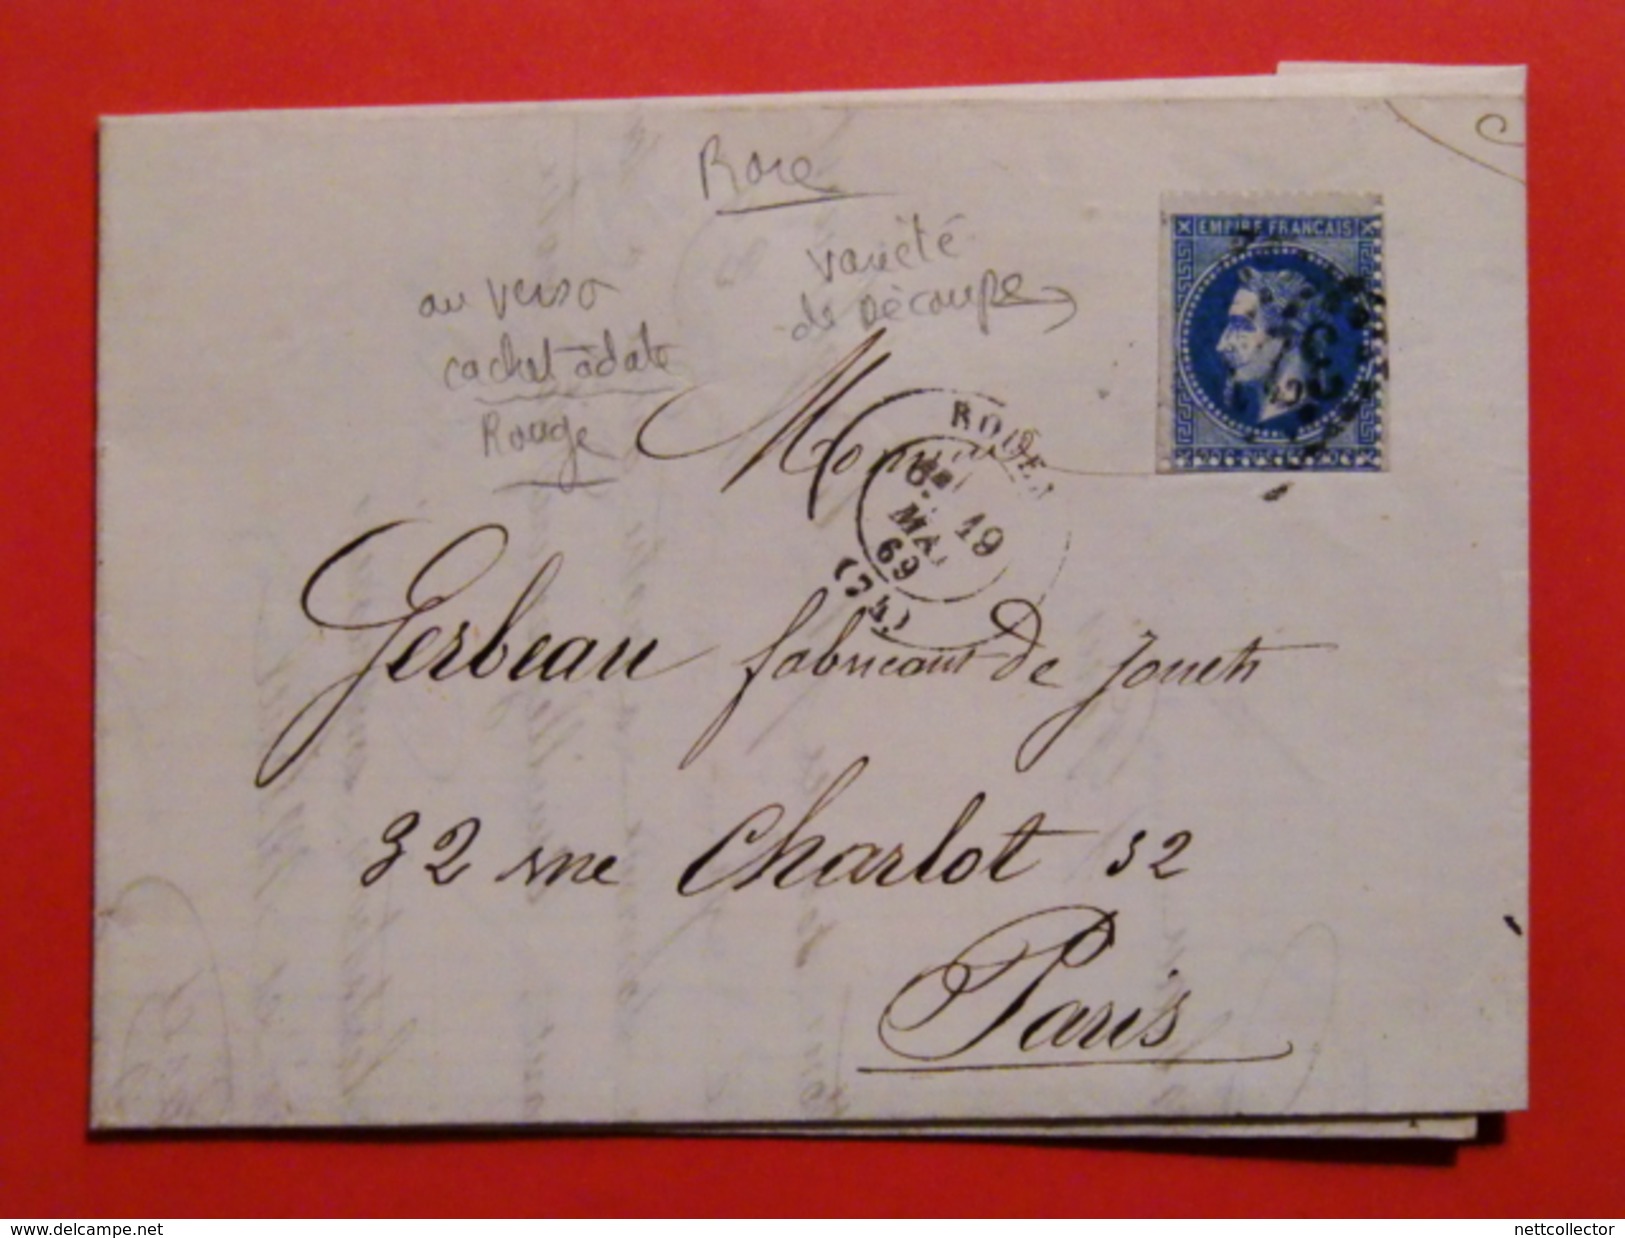 Rare
variété
de Découpe
au verso
cachet à date
Rouge
EMPIRE FRANCAIS
ROUEN
19
MAI
69
(74)
Monsieur
Gerbeau fabricant de Jouets
32 rue Charlot 32
Paris
www.delcampe.net
nettcollector